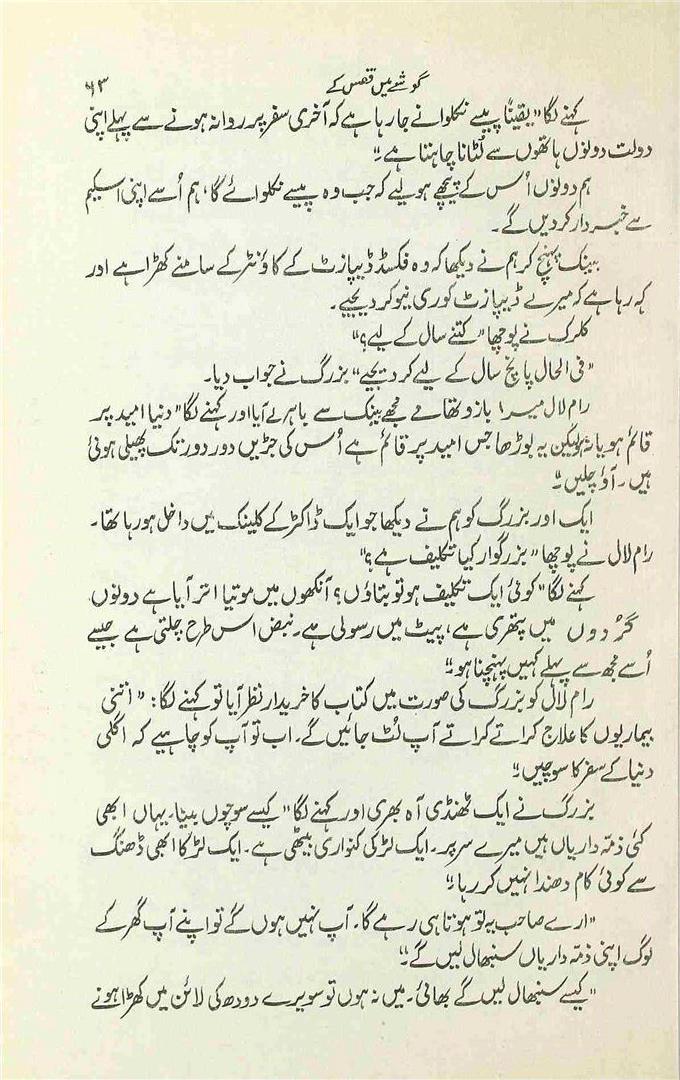 گوشے میں قفس کے ۶۳
کہنے لگا "یقیناً پیسے نکلوانے جا رہا ہے کہ آخری سفر پر روانہ ہونے سے پہلے اپنی
دولت دونوں ہاتھوں سے لُٹانا چاہتا ہے۔"
ہم دونوں اُس کے پیچھے ہو لیے کہ جب وہ پیسے نکلوائے گا، ہم اُسے اپنی اسکیم
سے خبردار کر دیں گے۔
بینک پہنچ کر ہم نے دیکھا کہ وہ فکسڈ ڈیپازٹ کے کاؤنٹر کے سامنے کھڑا ہے اور
کہہ رہا ہے کہ میرے ڈیپازٹ کو ری نیو کر دیجیے۔
کلرک نے پوچھا "کتنے سال کے لیے؟"
"فی الحال پانچ سال کے لیے کر دیجیے" بزرگ نے جواب دیا۔
رام لال میرا بازو تھامے مجھے بینک سے باہر لے آیا اور کہنے لگا "دنیا امید پر
قائم ہو یا نہ ہو لیکن یہ بوڑھا جس امید پر قائم ہے اُس کی جڑیں دور دور تک پھیلی ہوئی
ہیں۔ آؤ چلیں۔"
ایک اور بزرگ کو ہم نے دیکھا جو ایک ڈاکٹر کے کلینک میں داخل ہو رہا تھا۔
رام لال نے پوچھا "بزرگوار کیا تکلیف ہے؟"
کہنے لگا "کوئی ایک تکلیف ہو تو بتاؤں؟ آنکھوں میں موتیا اتر آیا ہے دونوں
گُردوں میں پتھری ہے، پیٹ میں رسولی ہے۔ نبض اس طرح چلتی ہے جیسے
اُسے مجھ سے پہلے کہیں پہنچنا ہو۔"
رام لال کو بزرگ کی صورت میں کتاب کا خریدار نظر آیا تو کہنے لگا: "اتنی
بیماریوں کا علاج کراتے کراتے آپ لُٹ جائیں گے۔ اب تو آپ کو چاہیے کہ اگلی
دنیا کے سفر کا سوچیں۔"
بزرگ نے ایک ٹھنڈی آہ بھری اور کہنے لگا "کیسے سوچوں بیٹا۔ یہاں ابھی
کئی ذمّہ داریاں ہیں میرے سر پر۔ ایک لڑکی کنواری بیٹھی ہے۔ ایک لڑکا ابھی ڈھنگ
سے کوئی کام دھندا نہیں کر رہا۔"
"ارے صاحب یہ تو ہوتا ہی رہے گا۔ آپ نہیں ہوں گے تو اپنے آپ گھر کے
لوگ اپنی ذمّہ داریاں سنبھال لیں گے۔"
"کیسے سنبھال لیں گے بھائی۔ میں نہ ہوں تو سویرے دودھ کی لائن میں کھڑا ہونے